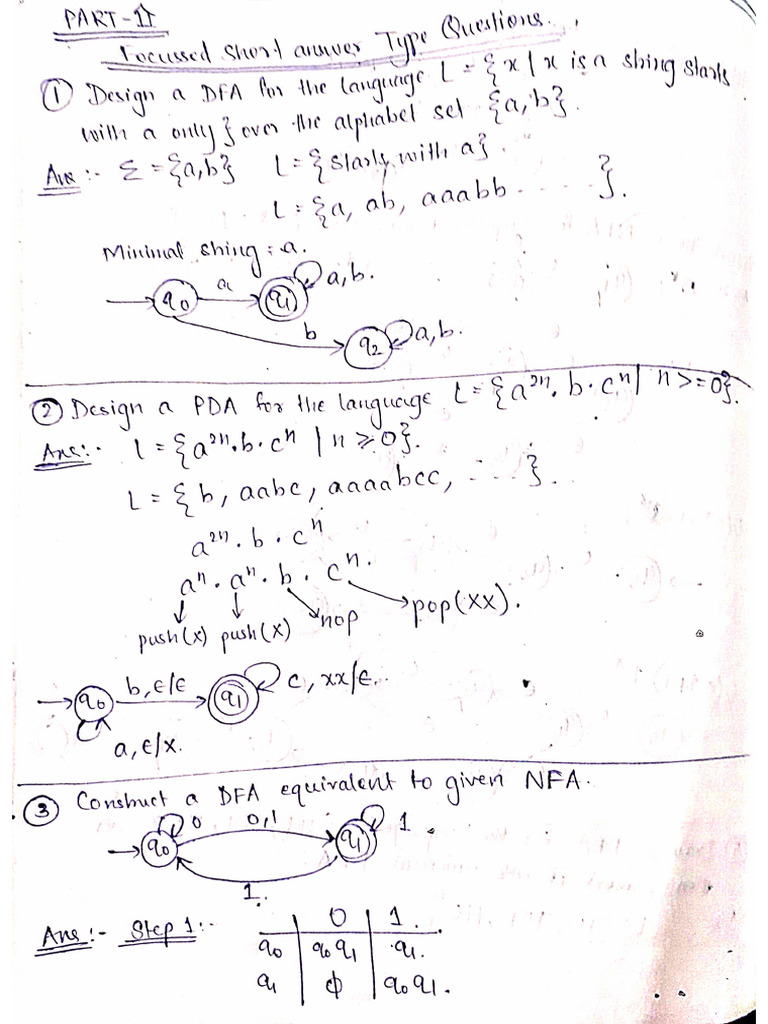 PART-II
Focussed short answer Type Questions.
① Design a DFA for the language L = {x | x is a string starts
with a only} over the alphabet set {a,b}.
Ans :- Σ = {a,b} L = {starts with a}.
L = {a, ab, aaabb ..... }.
Minimal string = a.
q0 a q1 a,b.
b q2 a,b.
② Design a PDA for the language L = {a^2n . b . c^n | n >= 0}.
Ans :- L = {a^2n . b . c^n | n ≥ 0}.
L = {b, aabc, aaaabcc, ..... }.
a^2n . b . c^n
a^n . a^n . b . c^n.
push(x) push(x) nop pop(xx).
q0 b, ε/ε q1 c, xx/ε.
a, ε/x.
③ Construct a DFA equivalent to given NFA.
q0 0 0,1 q1 1.
1.
Ans :- Step 1 :-
0 1.
q0 q0 q1 q1.
q1 ϕ q0 q1.